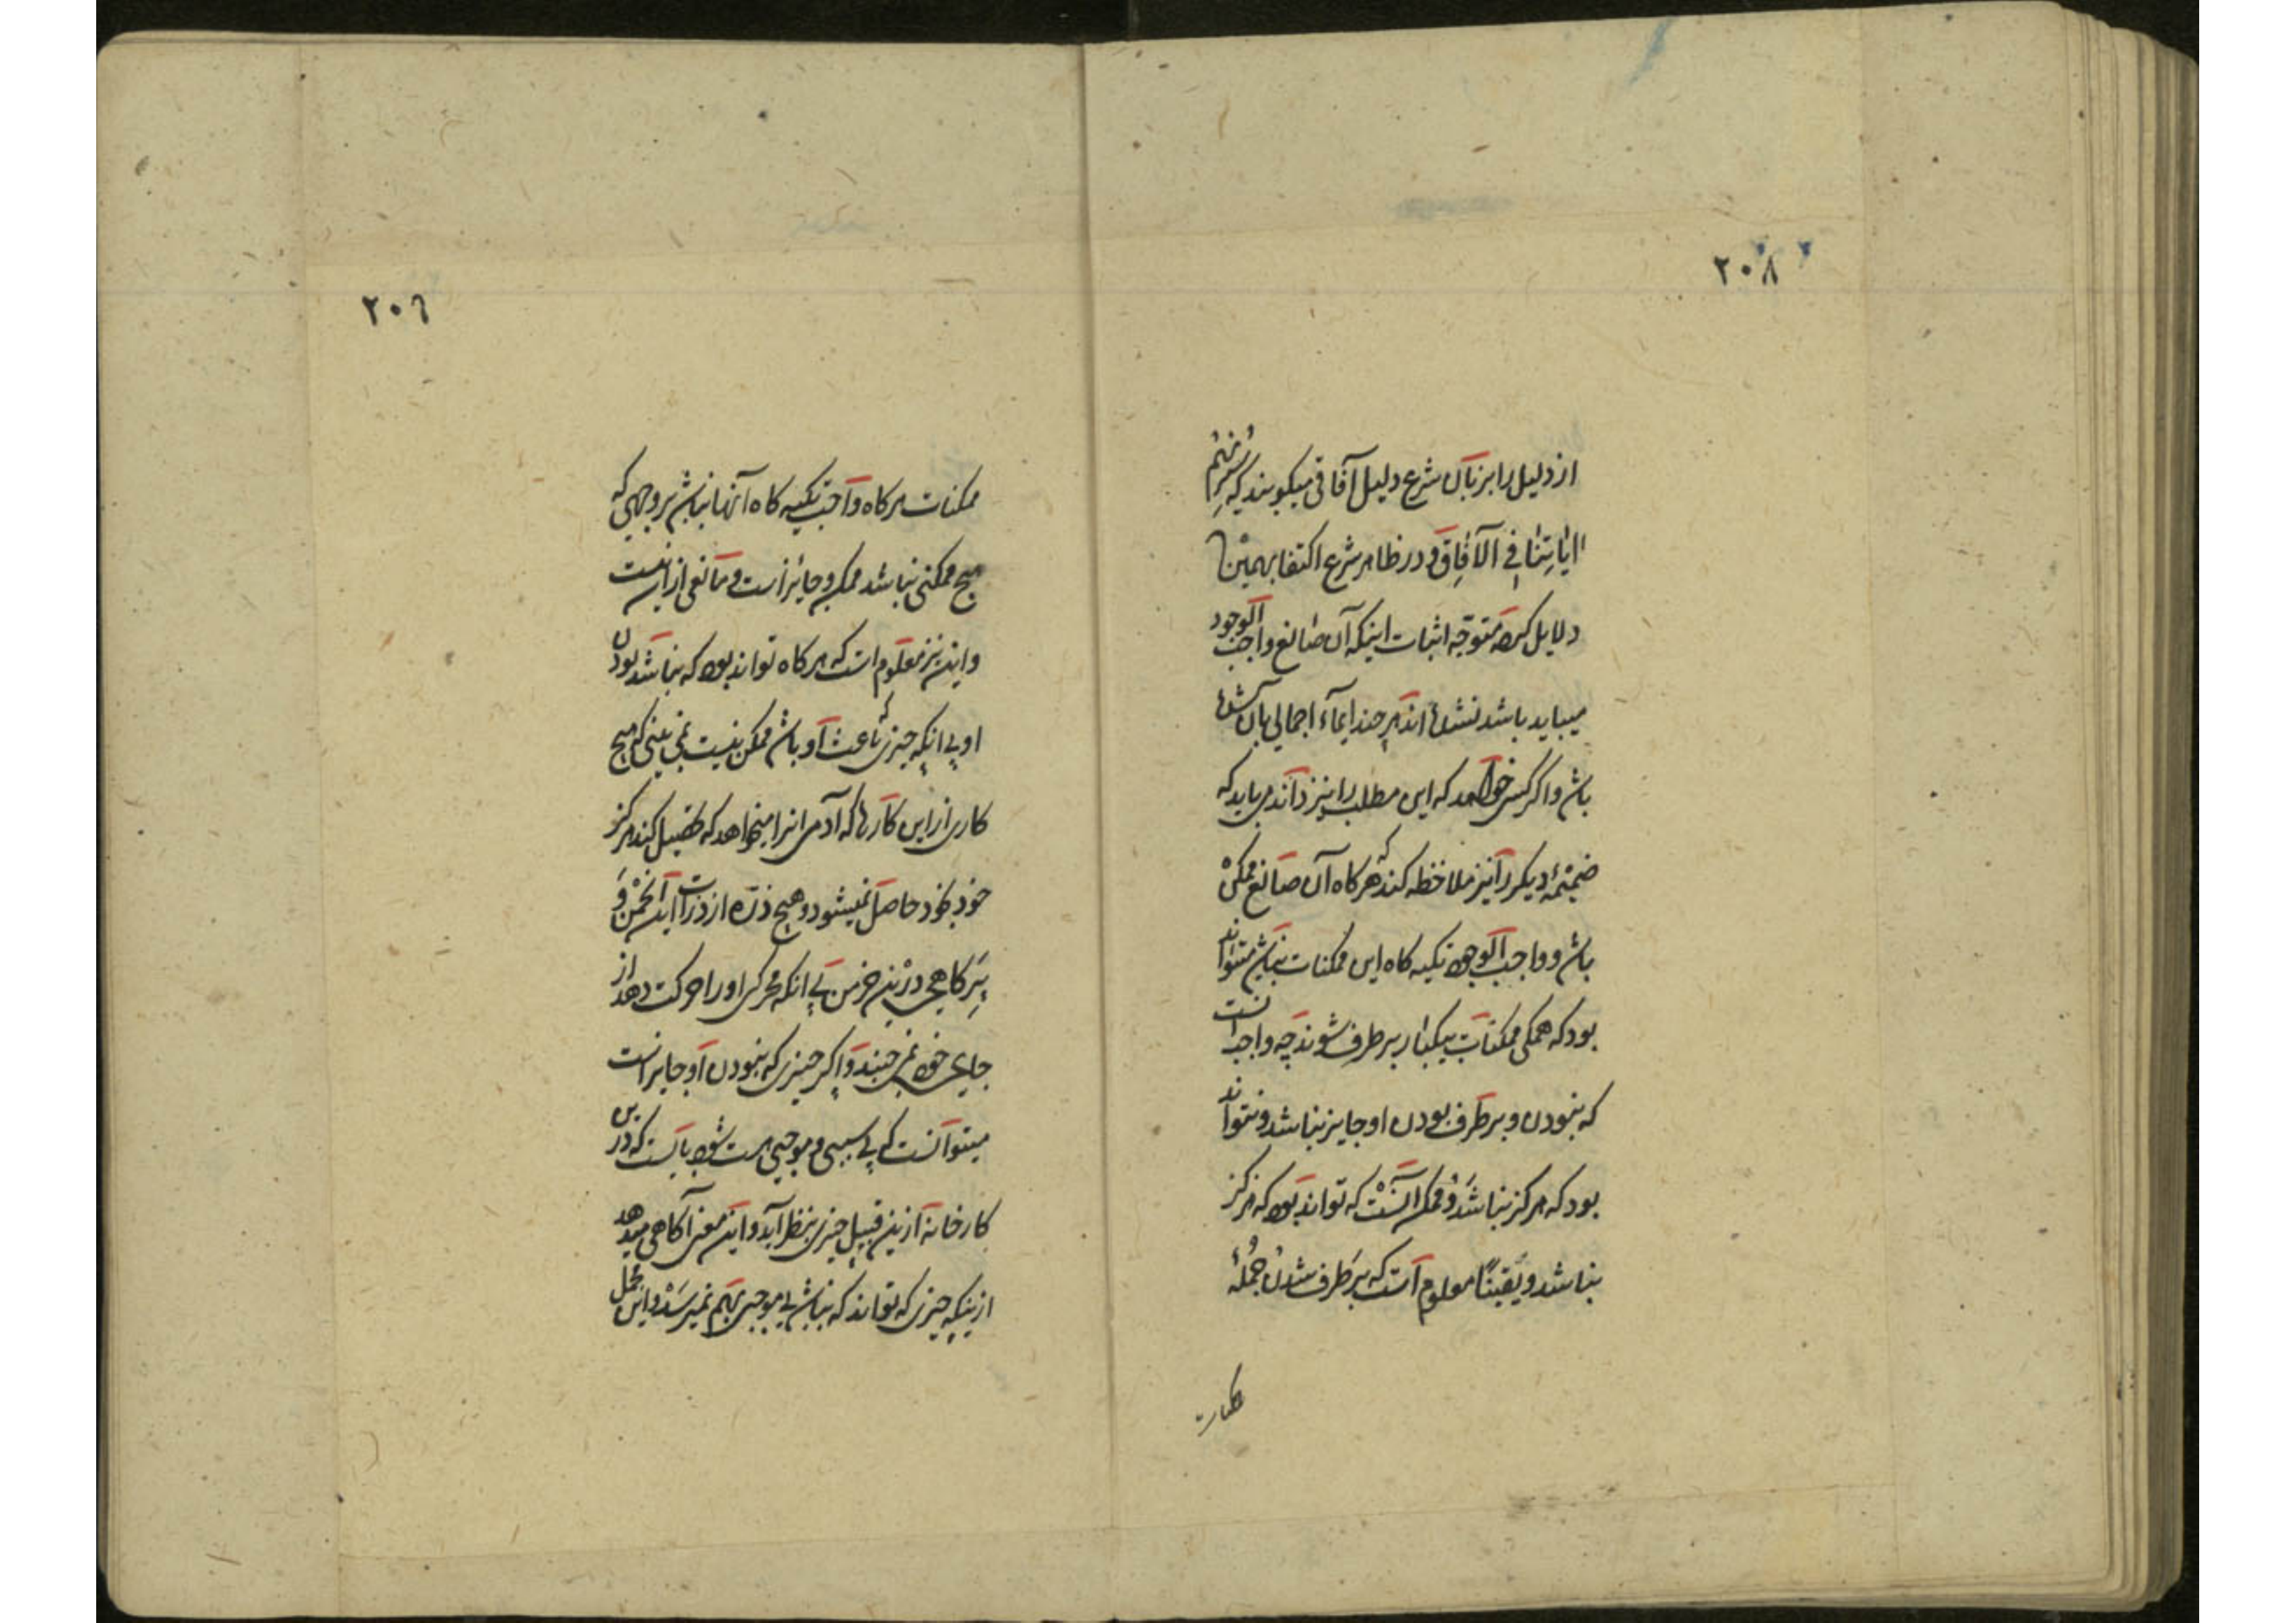 ۲۰۸
از دلیل را بزبان شرع دلیل آفاقی میگویند که سَنُرِیهِمْ
ایَاتِنَا فِی الآفَاقِ و در ظاهر شرع اکتفا بهمین
دلایل کرده متوجّه اثبات اینکه آن صانع واجب الوجود
میباید باشد نشده اند هر چند ایماء اجمالی بآن شده
باشد و اگر کسی خواهد که این مطلب را نیز داند می باید که
ضمیمهٔ دیگر را نیز ملاحظه کند که هر گاه آن صانع ممکن
باشد و واجب الوجود تکیه گاه این ممکنات نباشد میتواند
بود که همگی ممکنات بیکبار بر طرف شوند چه واجب آنست
که نبودن و بر طرف بودن او جایز نباشد و نتواند
بود که هرگز نباشد و ممکن آنست که تواند بود که هرگز
نباشد و یقیناً معلوم است که بر طرف شدن جملهٔ
ممکنات
۲۰۹
ممکنات هر گاه واجب تکیه گاه آنها نباشد بر وجهی که
هیچ ممکنی نباشد ممکن و جائز است و مانعی از این نیست
و این نیز معلوم است که هر گاه تواند بود که نباشد بودن
او بی انکه چیزی که باعث او باشد ممکن نیست نمی بینی که هیچ
کاری از این کارها که آدمی انرا میخواهد که تحصیل کند هرگز
خود بخود حاصل نمیشود و هیچ ذرّه از ذرات این انجمن و
پَرِ کاهی درین خرمن بی انکه محرکی او را حرکت دهد از
جای خود نمی جنبد و اگر چیزی که نبودن او جایز است
میتوانست که بی سببی و موجبی هست شود بایست که درین
کارخانه ازین قبیل چیزی بنظر آید و این معنی آگاهی میدهد
ازینکه چیزی که تواند که نباشد بی موجبی بهم نمیرسد و این مجمل